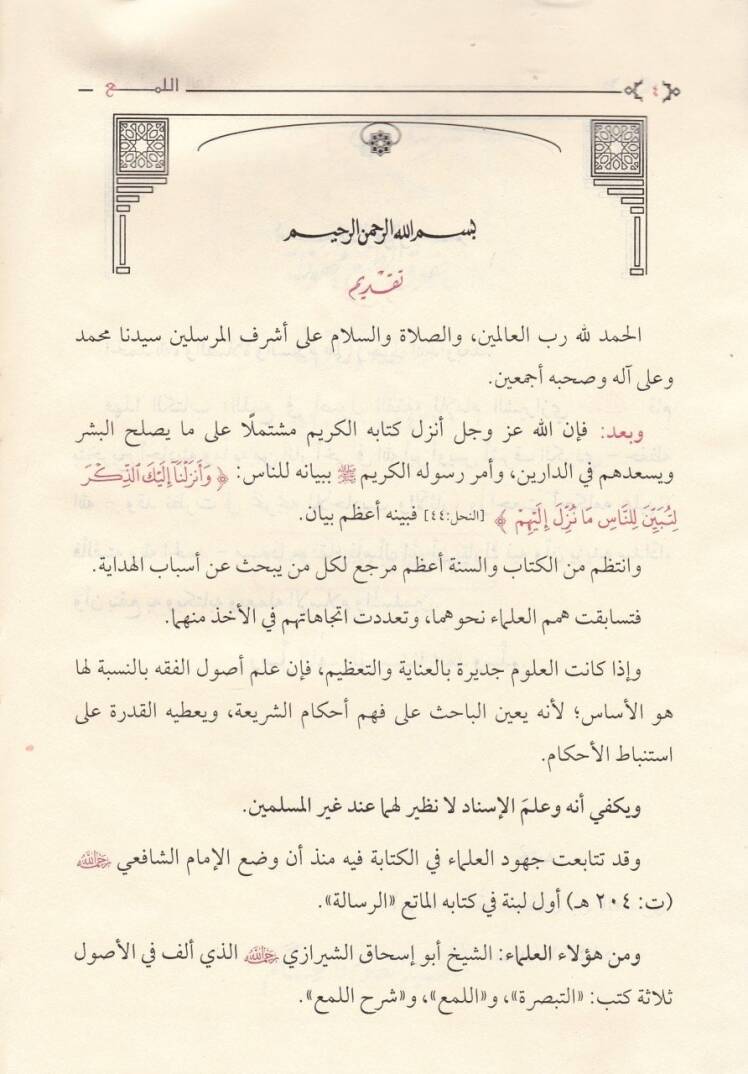 ٤ اللمـــع
بســم الله الرحمن الرحيــم
تقديم
الحمد لله رب العالمين، والصلاة والسلام على أشرف المرسلين سيدنا محمد
وعلى آله وصحبه أجمعين.
وبعد: فإن الله عز وجل أنزل كتابه الكريم مشتملًا على ما يصلح البشر
ويسعدهم في الدارين، وأمر رسوله الكريم ﷺ ببيانه للناس: ﴿ وَأَنزَلْنَآ إِلَيْكَ ٱلذِّكْرَ
لِتُبَيِّنَ لِلنَّاسِ مَا نُزِّلَ إِلَيْهِمْ ﴾ [النحل:٤٤] فبينه أعظم بيان.
وانتظم من الكتاب والسنة أعظم مرجع لكل من يبحث عن أسباب الهداية.
فتسابقت همم العلماء نحوهما، وتعددت اتجاهاتهم في الأخذ منهما.
وإذا كانت العلوم جديرة بالعناية والتعظيم، فإن علم أصول الفقه بالنسبة لها
هو الأساس؛ لأنه يعين الباحث على فهم أحكام الشريعة، ويعطيه القدرة على
استنباط الأحكام.
ويكفي أنه وعلمَ الإسناد لا نظير لهما عند غير المسلمين.
وقد تتابعت جهود العلماء في الكتابة فيه منذ أن وضع الإمام الشافعي رحمه الله
(ت: ٢٠٤ هـ) أول لبنة في كتابه الماتع «الرسالة».
ومن هؤلاء العلماء: الشيخ أبو إسحاق الشيرازي رحمه الله الذي ألف في الأصول
ثلاثة كتب: «التبصرة»، و«اللمع»، و«شرح اللمع».